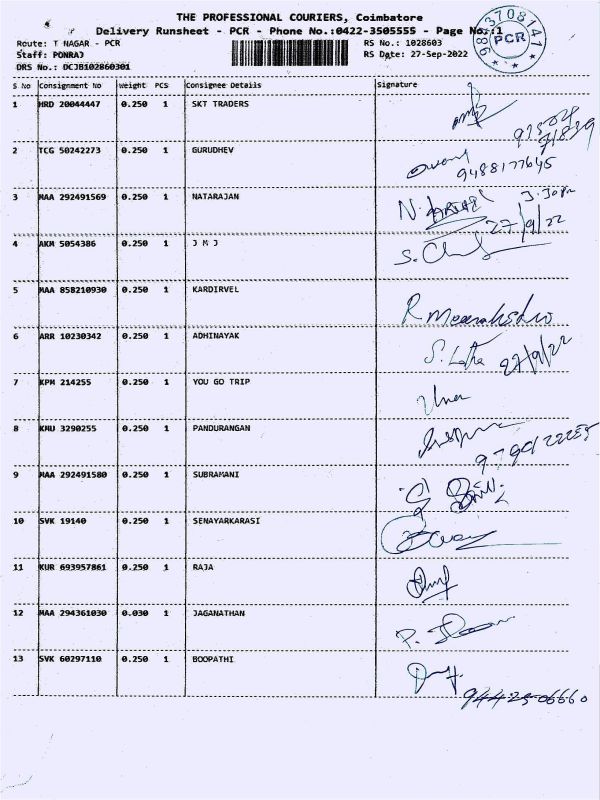 THE PROFESSIONAL COURIERS, Coimbatore
Delivery Runsheet - PCR - Phone No.:0422-3505555 - Page No.:1
Route: T NAGAR - PCR
RS No.: 1028603
Staff: PONRAJ
RS Date: 27-Sep-2022
DRS No.: DCJB102860301
9883708141
PCR
S No Consignment No Weight PCS Consignee Details Signature
1 HRD 20044447 0.250 1 SKT TRADERS
2 TCG 50242273 0.250 1 GURUDHEV
9488177645
3 MAA 292491569 0.250 1 NATARAJAN
27/9/22
4 AKM 5054386 0.250 1 J M J
5 MAA 858210930 0.250 1 KARDIRVEL R Meenakshi
6 ARR 10230342 0.250 1 ADHINAYAK S. Latha 27/9/22
7 KPM 214255 0.250 1 YOU GO TRIP Uma
8 KMU 3290255 0.250 1 PANDURANGAN
9 MAA 292491580 0.250 1 SUBRAMANI
10 SVK 19140 0.250 1 SENAYARKARASI
11 KUR 693957861 0.250 1 RAJA
12 MAA 294361030 0.030 1 JAGANATHAN
13 SVK 60297110 0.250 1 BOOPATHI
94425-06660